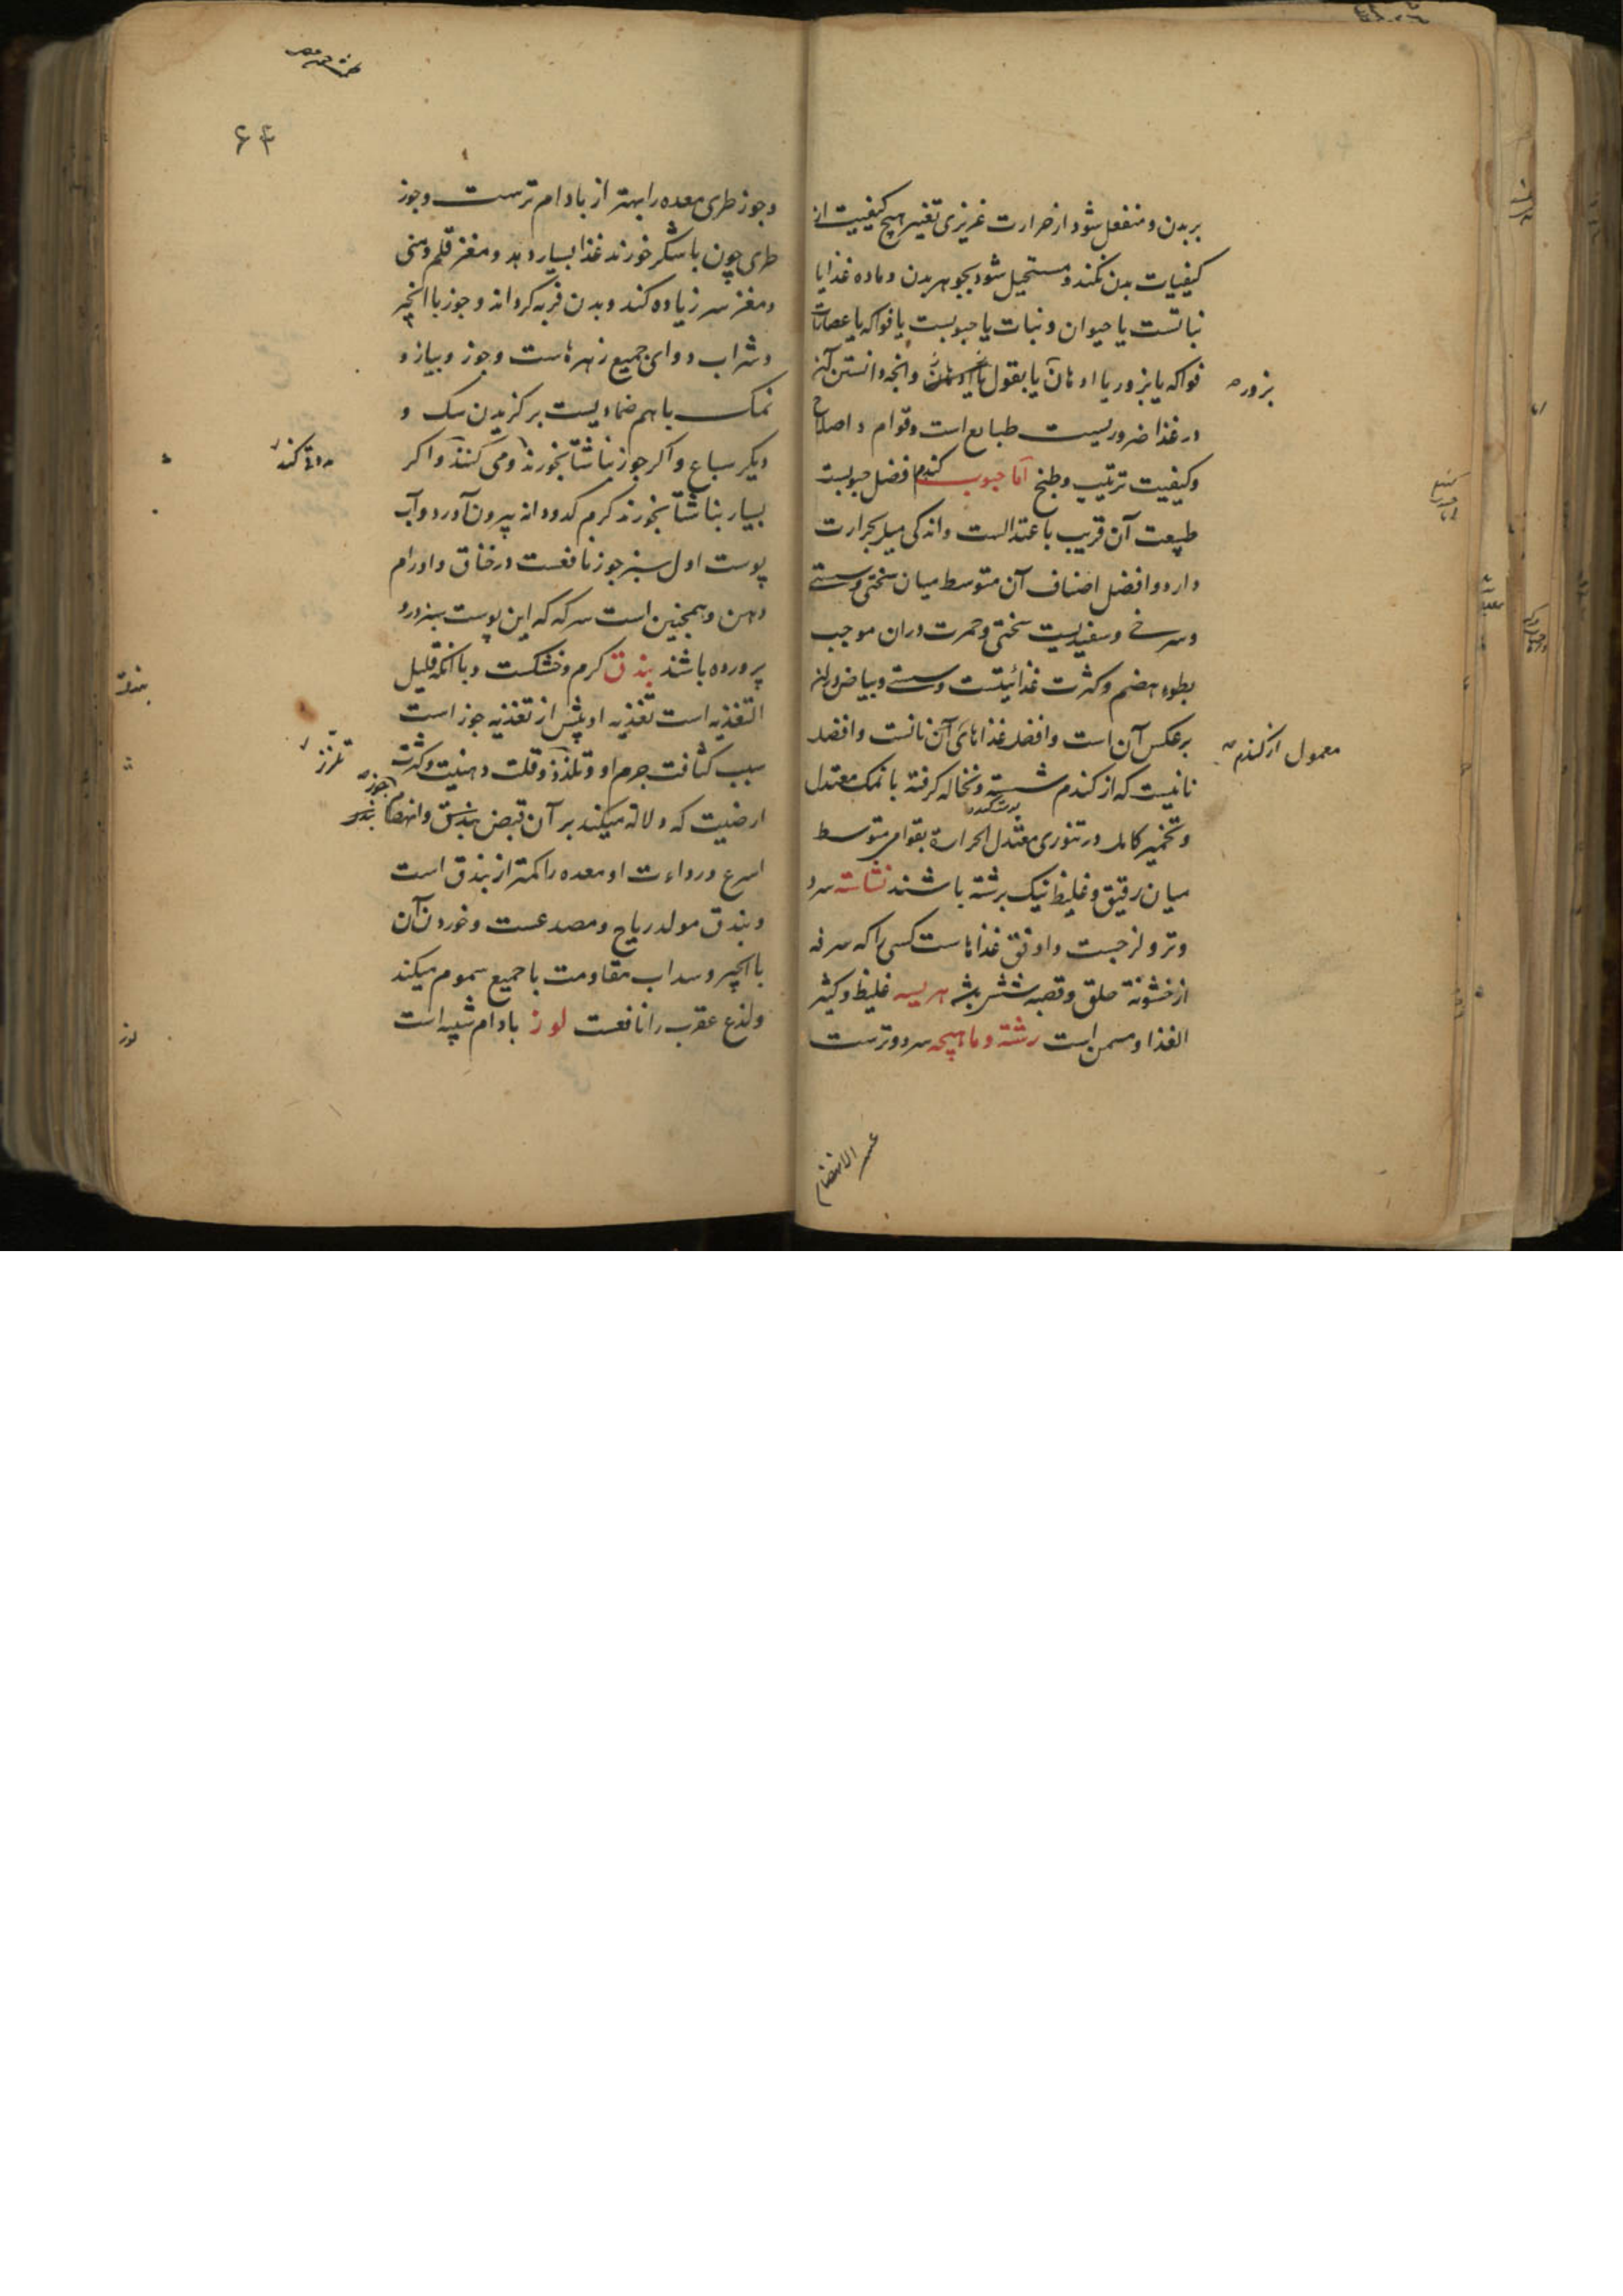 بر بدن و منفعل شود از حرارت غریزی تغییر هیچ کیفیت از
کیفیات بدن نکند و مستحیل شود بجوهر بدن و ماده غذا یا
نباتست یا حیوان و نبات یا حبوبست یا فواکه یا عصارات
فواکه یا بزور یا ادهان یا بقول یا ادهان وانچه دانستن آن
بزور
در غذا ضروریست طبایع است و قوام و اصلاح
وکیفیت ترتیب و طبخ اما حبوب کندم افضل حبوبست
طبیعت آن قریب باعتدالست و اندکی میل بحرارت
دارد و افضل اصناف آن متوسط میان سختی و سستی
و سرخی و سفیدیست سختی و حمرت دران موجب
بطوء هضم و کثرت غذائیتست و سستی و بیاض دران
برعکس آن است و افضل غذاهای آن نانست و افضل
معمول از کندم
نانیست که از کندم شسته و نخاله کرفته با نمک معتدل
و تخمیر کامل در تنوری معتدل الحرارة بقوام متوسط
میان رقیق و غلیظ نیک برشته باشند نشاسته سرد
و تر و لزجست و اوفق غذاهاست کسی را که سرفه
از خشونة حلق و قصبه شش باشد هریسه غلیظ و کثیر
الغذا و مسمن است رشته و ماهیچه سرد و ترست
عسر الانهضام
۶۴
و جوز طری معده را بهتر از بادام ترست و جوز
طری چون با شکر خورند غذا بسیار دهد و مغز قلم و منی
و مغز سر زیاده کند و بدن فربه کرداند و جوز با انجیر
و شراب دوای جمیع زهرهاست و جوز و پیاز و
نمک با هم ضمادیست بر کزیدن سک و
دیکر سباع و اکر جوز ناشتا بخورند و می کنند و اکر
بسیار بناشتا بخورند کرم کدودانه بیرون آورد و آب
پوست اول سبز جوز نافعست در خناق و اورام
دهن و همچنین است سرکه که این پوست سبز درو
پرورده باشند بندق کرم و خشکست و با انکه قلیل
بندق
التغذیه است تغذیه او بیش از تغذیه جوز است
سبب کثافت جرم او و تلذذ و قلت دهنیت و کثرت
تلزز
ارضیت که دلالة میکند بر آن قبض بندق و انهضام
جوز
اسرع و رداءت او معده را کمتر از بندق است
و بندق مولد ریاح و مصدعست و خوردن آن
با انجیر و سداب مقاومت با جمیع سموم میکند
و لذع عقرب را نافعست لوز بادام شیرین است
لوز